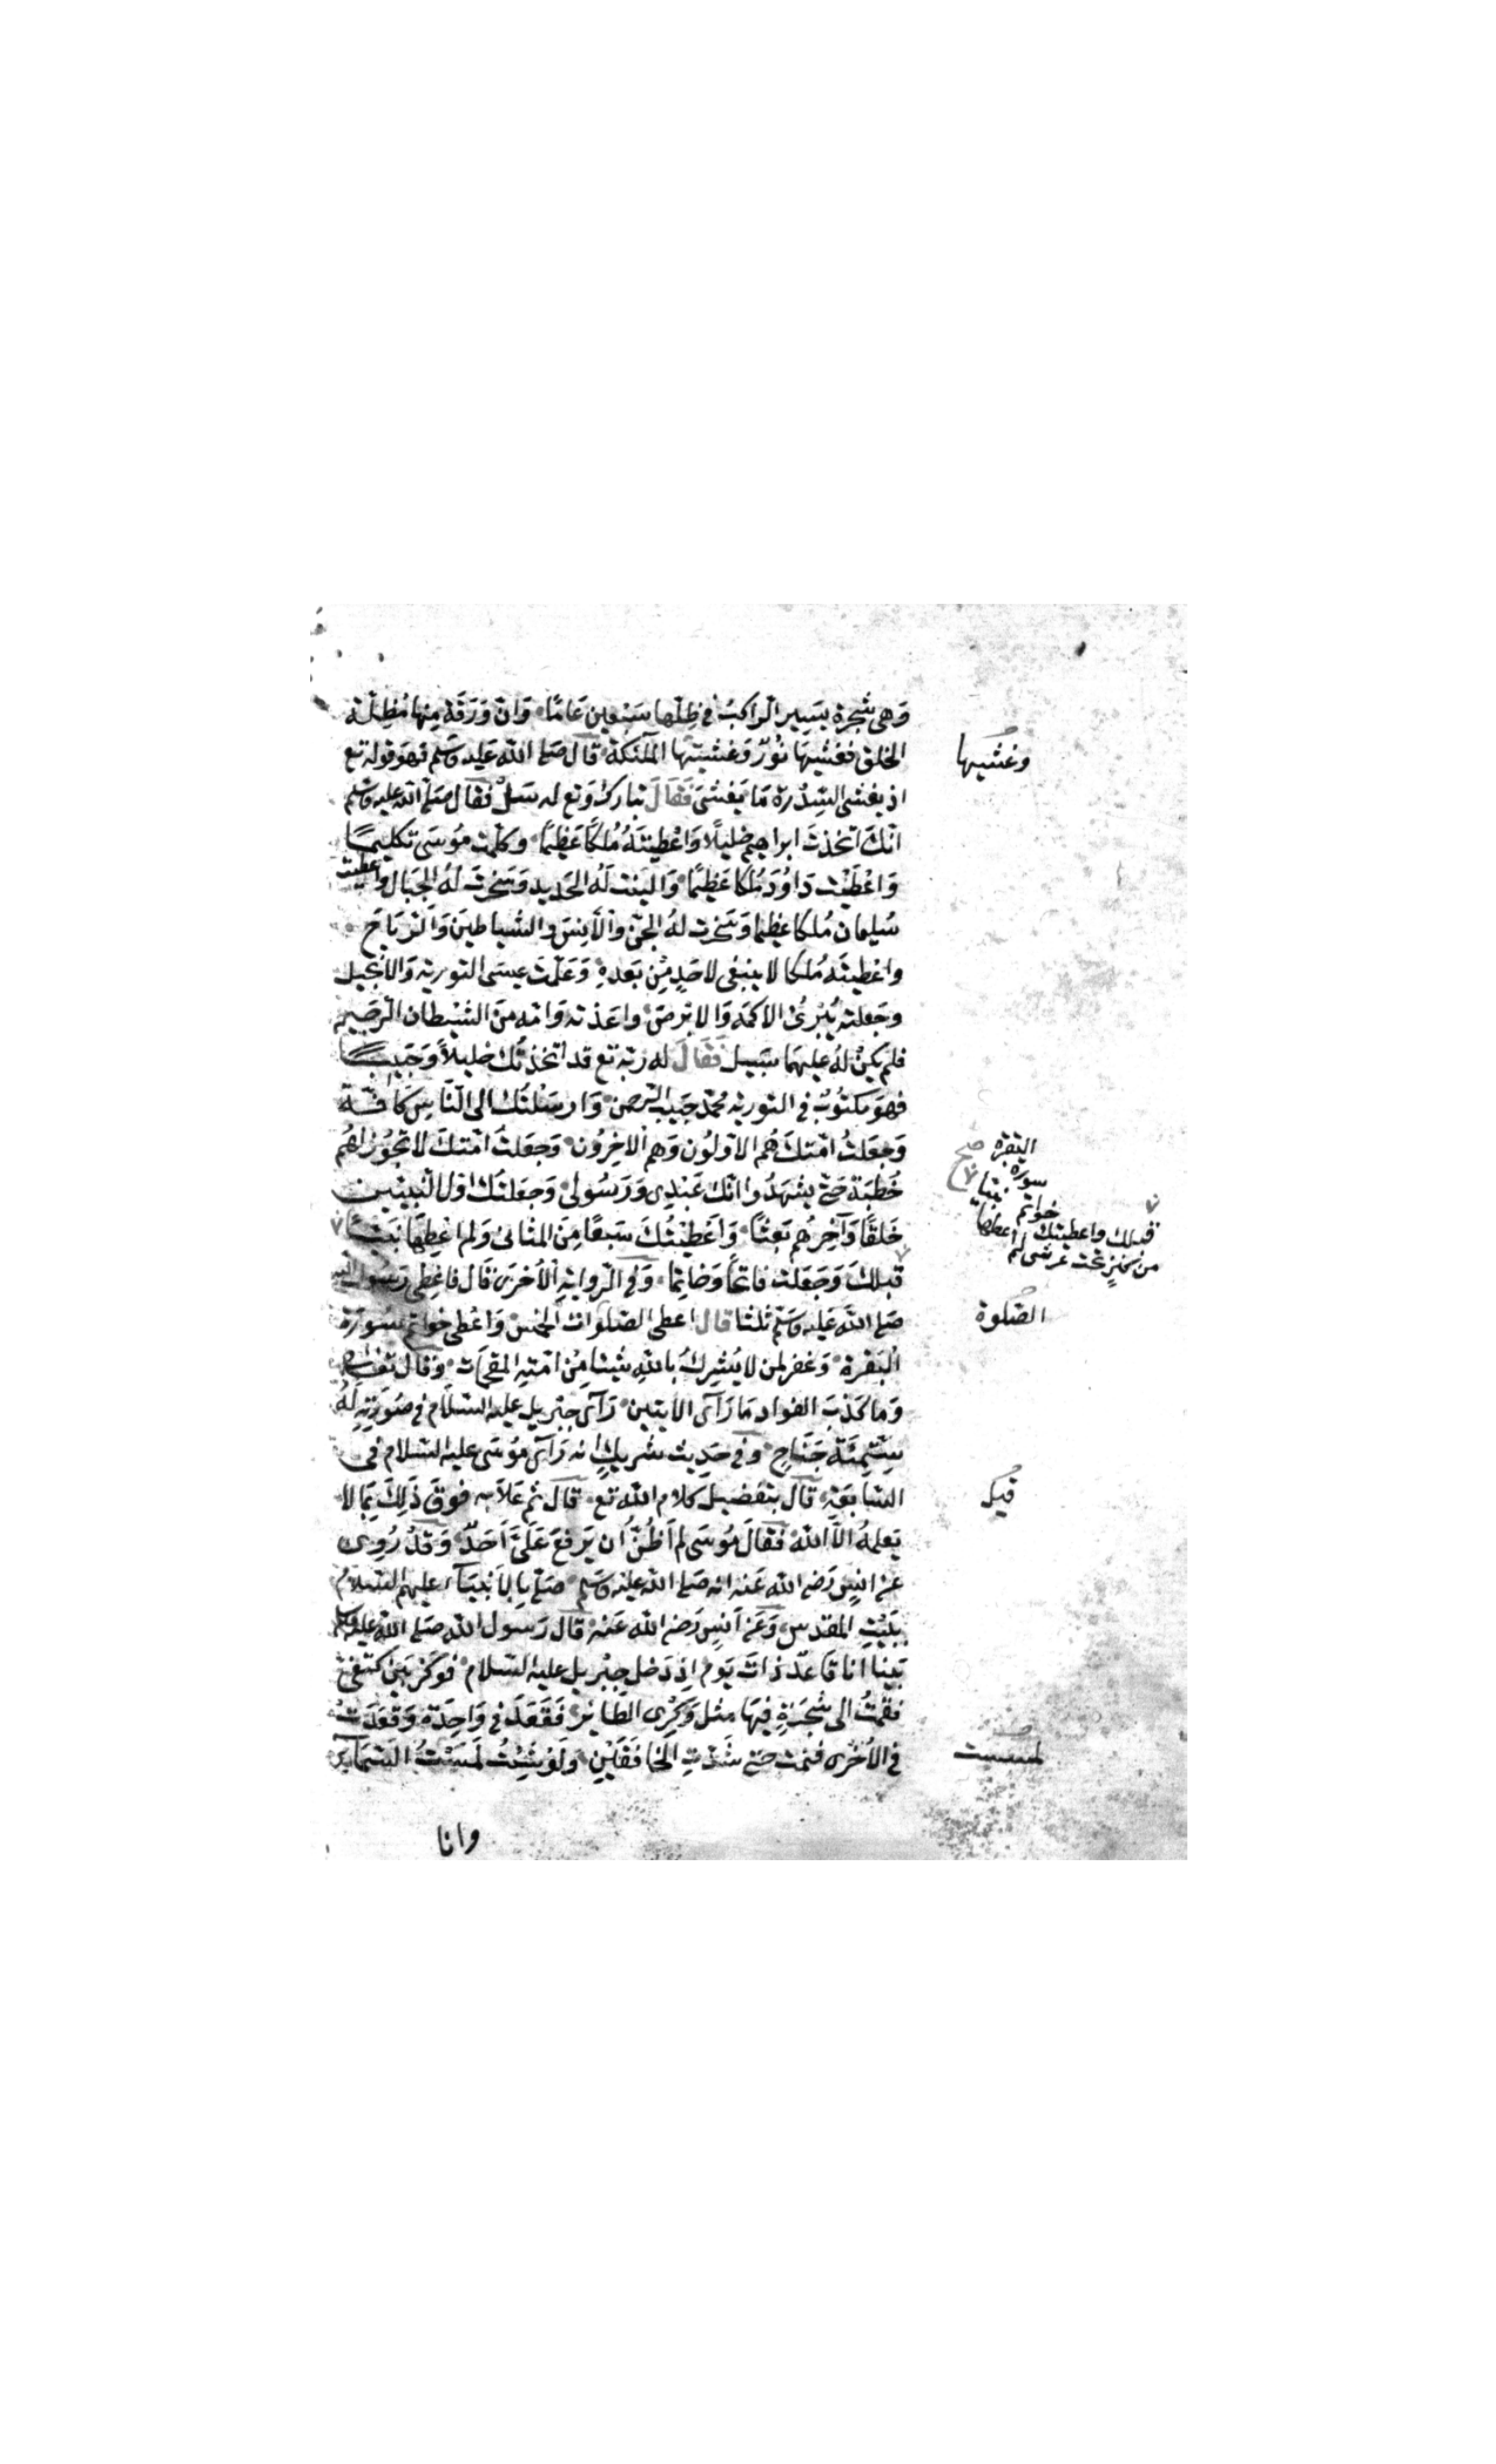 وَهى شجَرة يسَيِر الراكبُ فى ظِلّها سَبْعين عَامًا وَانّ وَرَقَة مِنها مُظِلّة
الخلق فغشيَهَا نُورٌ وَغشيتهَا الملٓئكة قال صَلى الله عَليه وَسَلم فهوَ قوله تع
وغشيها
اذ يغشى السِّدْرة مَا يَغشىَ فَقَالَ تبارك وَتع له سَلْ فقال صَلى الله عليه وسلم
انّكَ اتخذتَ ابراهيم خليلًا وَاعْطيتَهُ مُلكًا عَظِيمًا وكلّمت مُوسَى تكليمًا
وَاعْطَيْت دَاوُدَ مُلكا عَظيمًا وَاليَنت لَه الحَدِيد وَسَخرتَ لهُ الجبَال واعطيت
سُليمان مُلكا عظِيما وَسَخرت لهُ الجنّ والأنِسَ والشياطينَ وَالرّيَاحَ
واعْطيتَه مُلكا لا ينبغى لاحَدٍ مِن بَعدهِ وَعَلّمْتَ عيسَى التوريٰة وَالانجيل
وجَعلته يُبْرِئ الاكمَه وَالابْرصَ واعَذته وَامّه منَ الشيْطان الرّجيم
فلم يكنْ لهُ عليهمَا سَبيل فَقَالَ له ربّه تع قد اتّخذتُك خليلًا وَحَبيبًا
فهوَ مكتوُبٌ فى التورية محمّد حَبيب الرحمن وَارسَلتُك الى النّاسِ كَافّة
وَجعَلتُ امّتكَ هُم الاوّلوُن وَهم الآخِرُون وَجعَلتُ امّتكَ لا تجوُز لهُم
خُطبَة حَتى يشهَدُوا انّك عَبْدِى وَرَسُولى وَجعَلتُك اوّل النّبيّين
البقرة صح
سورة
خواتم
خَلقًا وَآخِرهُم بَعثًا وَاعَْطيْتُكَ سَبعًا مِنَ المثانى وَلم اعْطِهَا نبَيًّا
قبلك واعطيتك
من كنز تحت عرشى لم اعطها نبيا
قبلكَ وَجَعَلتك فاتحًا وَخَاتِمًا وَفى الرّوايَة الاُخرَى قَال فاعْطِى رَسُول الله
صَلى الله عَليه وسَلم ثلثا قال اعطى الصّلوات الخمْس وَاعْطى خواتيم سُورَة
الصلوة
البَقَرة وَغفر لمن لا يُشركُ باللهِ شيئا مِنْ امّتهِ المقحمَات وَقال
وَما كذبَ الفواد مَا رَآى الآيتين رَآى جبْريل عليه السّلام فى صُورَتِه لَهُ
سِتّمئَة جَنَاحٍ وَفى حَديث شريكٍ انه رَآى مُوسَى عليه السّلام فى
السّابعَة قال بتفضيل كلام الله تع قال ثم عَلَا به فوق ذَلِكَ بَِما لا
يَعلمهُ الّا الله فقالَ مُوسَى لم اَظُنّ ان يَرفعَ عَلَىَّ اَحَدٌ وَقَدْ رُوِىَ
عن انسٍ رَضى الله عَنه انه صَلى الله عليه وسَلم صَلّى بالانبيَآء عليهم السّلام
ببَيْتِ المقدِس وَعَن اَنسٍ رَضى الله عَنه قال رَسول الله صَلى الله عليه وسلم
بَينا انا قاعدٌ ذاتَ يَوم اِذ دَخل جِبْريل عليه السلام فوكز بَين كتفىّ
فقمْتُ الى شجَرةٍ فيهَا مثل وَكْرِى الطَّائر فَقَعَدَ فى وَاحِدَة وَقعَدتُ
فى الاُخْرى فنمت حَتى سَدّتِ الخافقَيْنِ وَلَوْ شِئتُ لَمَسَسْتُ السّمَاء
لمسست
وانا